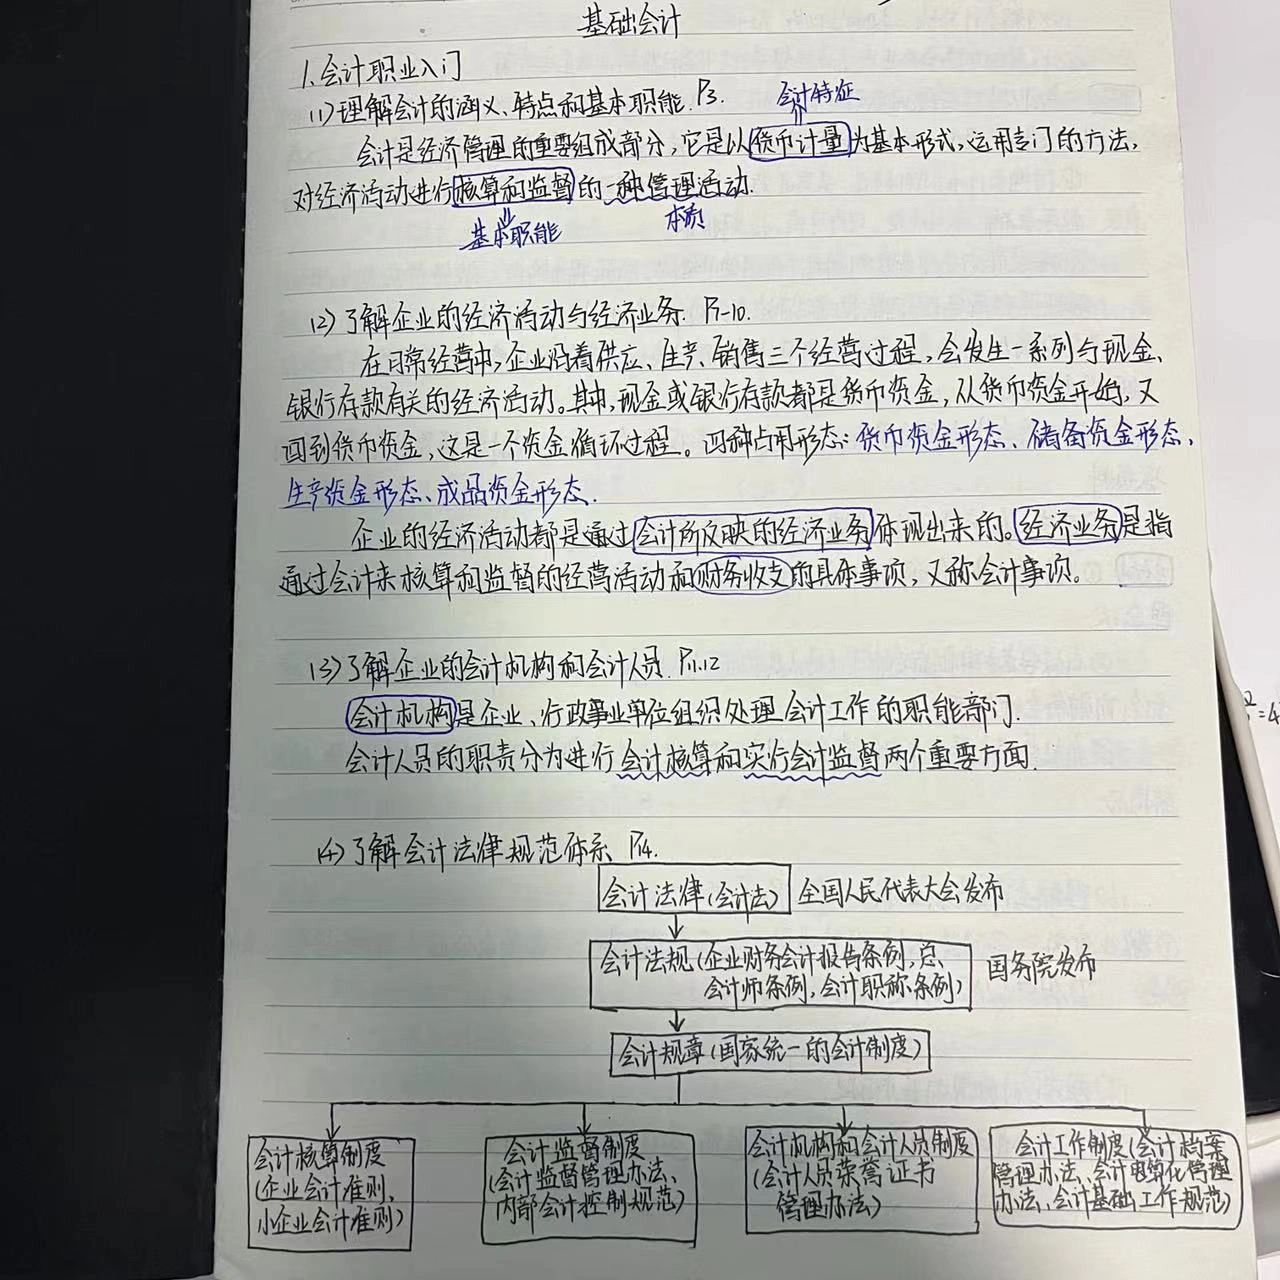 基础会计
1.会计职业入门
(1)理解会计的涵义、特点和基本职能. P3.
会计特征
会计是经济管理的重要组成部分,它是以货币计量为基本形式,运用专门的方法,
对经济活动进行核算和监督的一种管理活动.
基本职能
本质
(2)了解企业的经济活动与经济业务. P7-10.
在日常经营中,企业沿着供应、生产、销售三个经营过程,会发生一系列与现金、
银行存款有关的经济活动。其中,现金或银行存款都是货币资金,从货币资金开始,又
回到货币资金,这是一个资金循环过程。四种占用形态:货币资金形态、储备资金形态、
生产资金形态、成品资金形态.
企业的经济活动都是通过会计所反映的经济业务体现出来的。经济业务是指
通过会计来核算和监督的经营活动和财务收支的具体事项,又称会计事项。
(3)了解企业的会计机构和会计人员. P11.12
会计机构是企业、行政事业单位组织处理会计工作的职能部门.
会计人员的职责分为进行会计核算和实行会计监督两个重要方面.
(4)了解会计法律规范体系 P14.
会计法律(会计法) 全国人民代表大会发布
会计法规(企业财务会计报告条例,总
会计师条例,会计职称条例) 国务院发布
会计规章(国家统一的会计制度)
会计核算制度
(企业会计准则、
小企业会计准则)
会计监督制度
(会计监督管理办法、
内部会计控制规范)
会计机构和会计人员制度
(会计人员荣誉证书
管理办法)
会计工作制度(会计档案
管理办法、会计电算化管理
办法、会计基础工作规范)